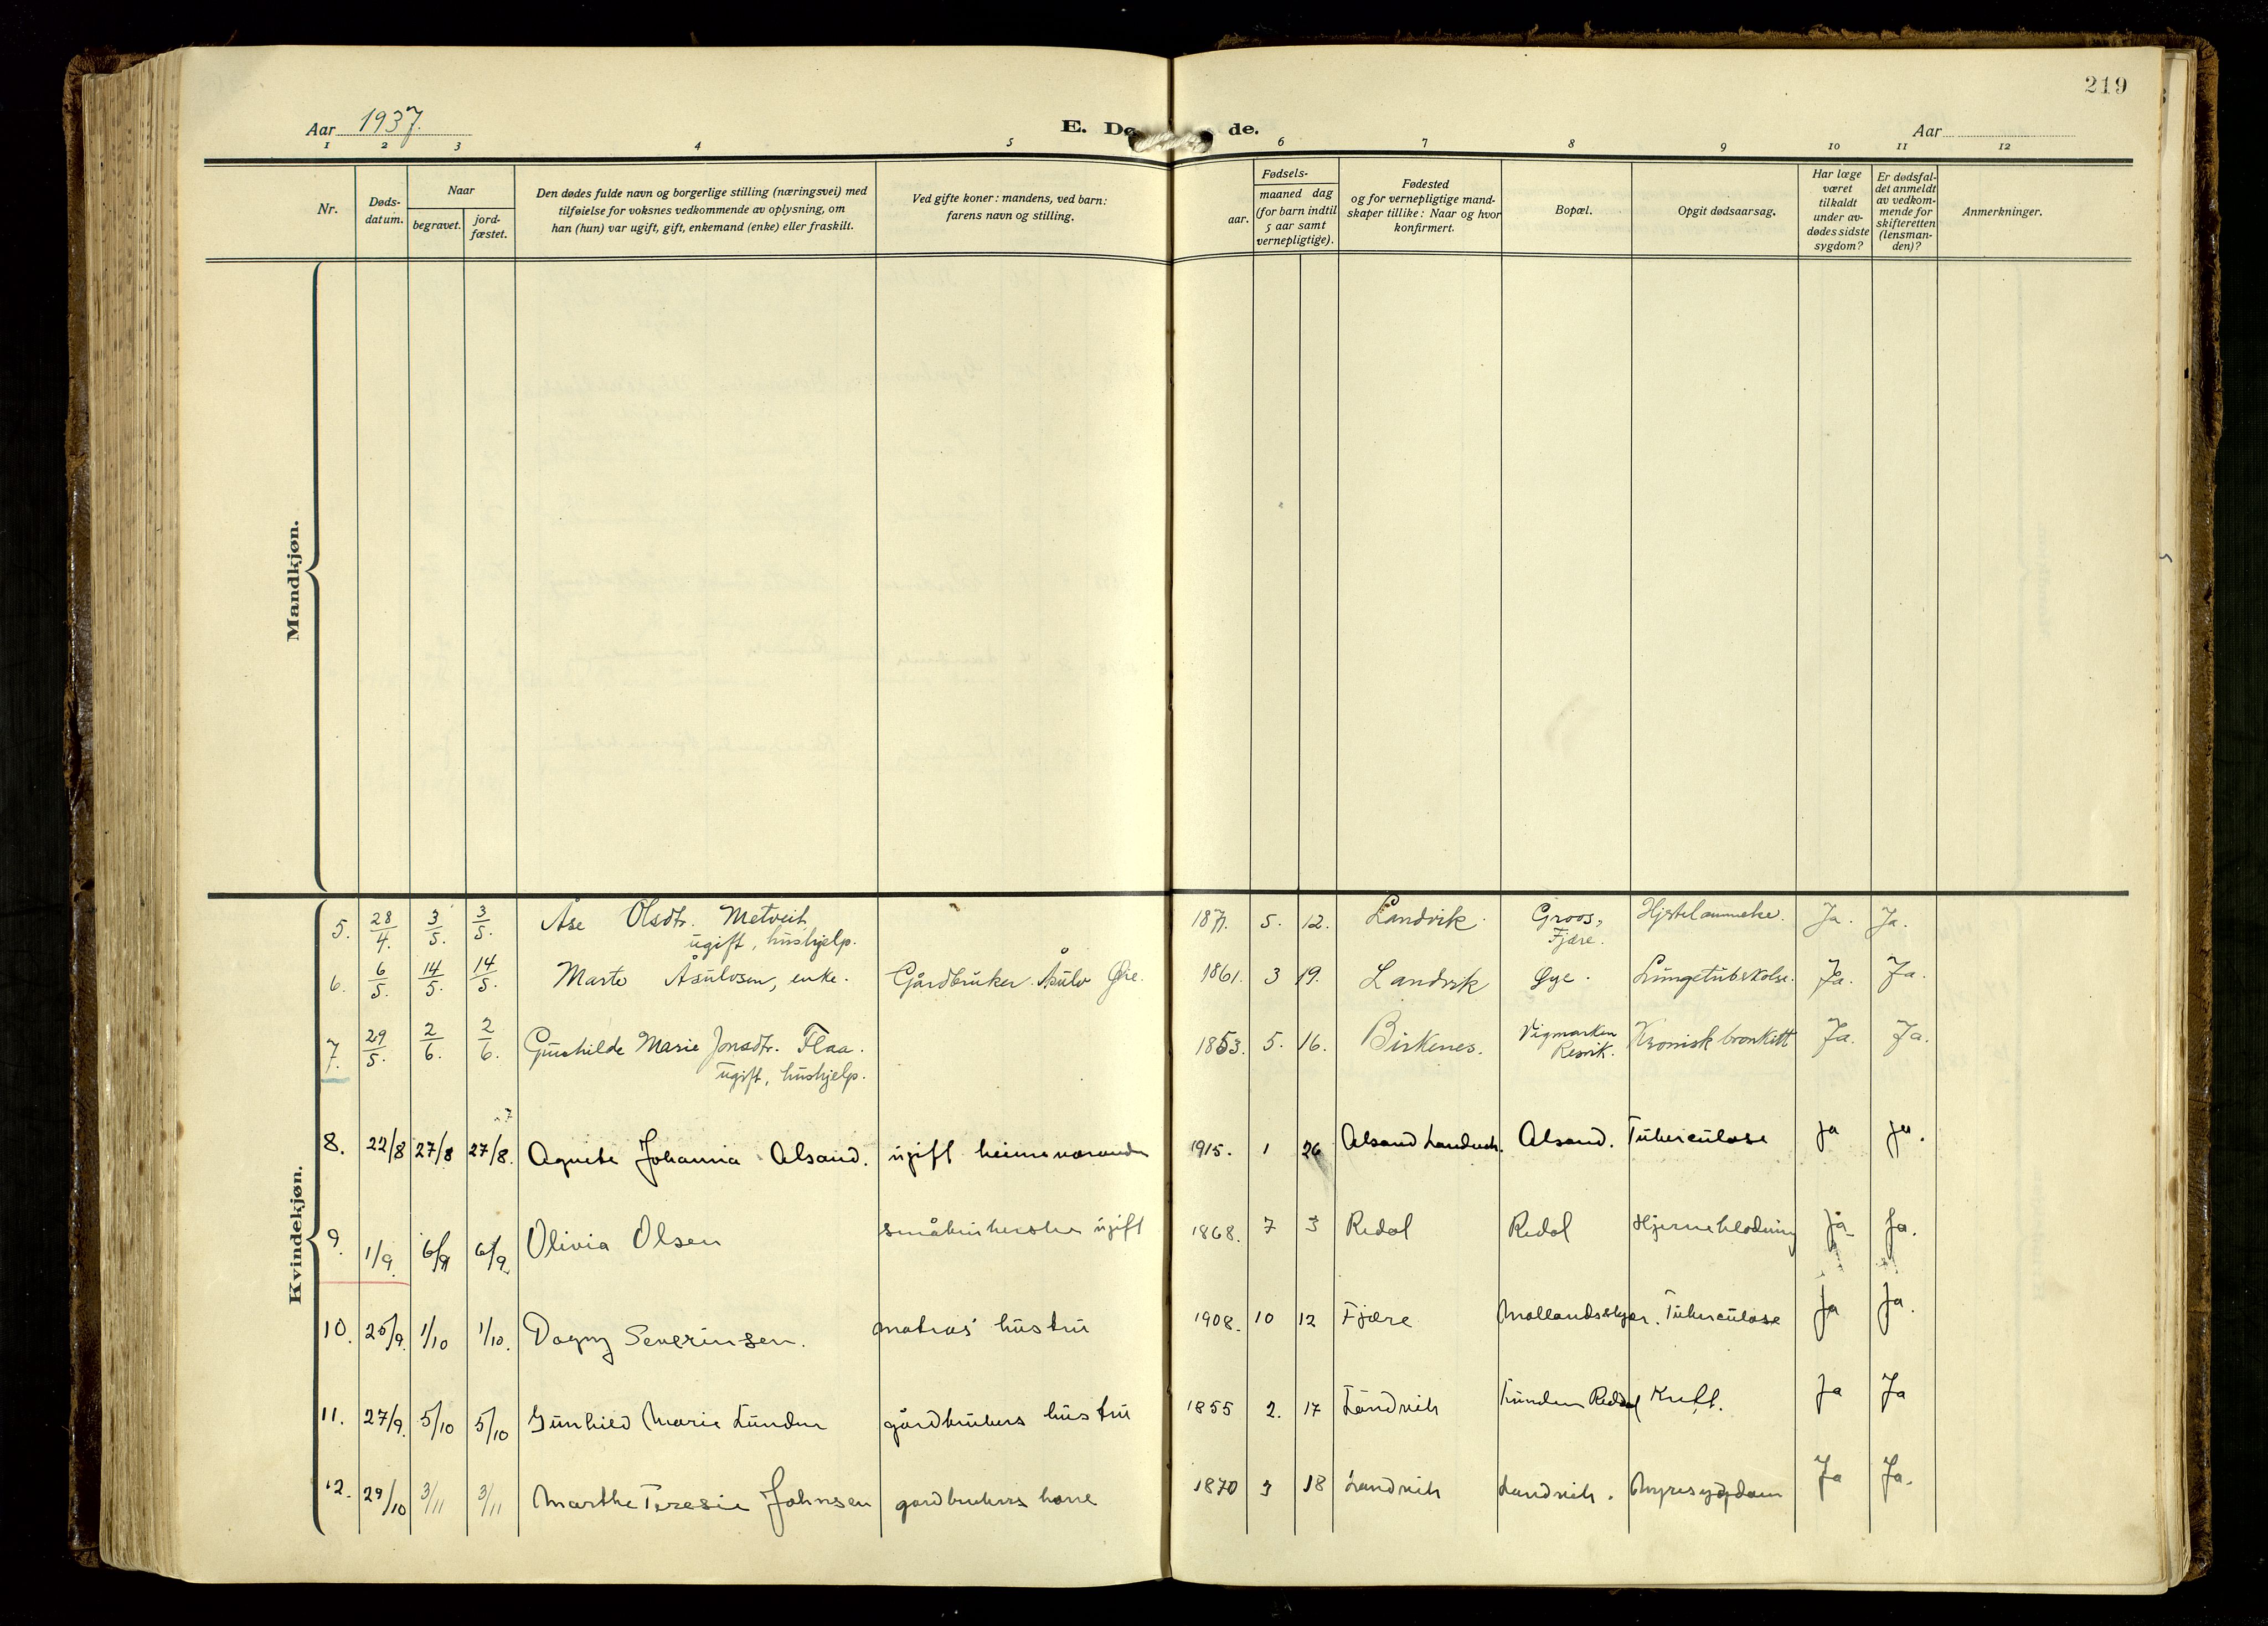 219
Aar 1937.
E. Dø de.
Aar
1 2 3 4 5 6 7 8 9 10 11 12
Nr.
Døds-
datum.
Naar
begravet.
jord-
fæstet.
Den dødes fulde navn og borgerlige stilling (næringsvei) med
tilføielse for voksnes vedkommende av oplysning, om
han (hun) var ugift, gift, enkemand (enke) eller fraskilt.
Ved gifte koner: mandens, ved barn:
farens navn og stilling.
Fødsels-
aar.
maaned dag
(for barn indtil
5 aar samt
vernepligtige).
Fødested
og for vernepligtige mand-
skaper tillike: Naar og hvor
konfirmert.
Bopæl.
Opgit dødsaarsag.
Har læge
været
tilkaldt
under av-
dødes sidste
sygdom?
Er dødsfal-
det anmeldt
av vedkom-
mende for
skifteretten
(lensman-
den)?
Anmerkninger.
Mandkjøn.
Kvindekjøn.
5. 28/4. 3/5. 3/5. Åse Olsdtr. Metveit 1871. 5. 12. Landvik. Groos, Ja. Ja.
ugift, hushjelp. Fjære.
6. 6/5. 14/5. 14/5. Marte Åsulvsen, enke. Gårdbruker Åsulv Øie. 1861. 3 19. Landvik Øye. Ja. Ja.
7. 29/5. 2/6. 2/6. Gunhilde Marie Jonsdtr. Flaa. 1853. 5. 16. Birkenes. Vigmarken Kronisk bronkitt Ja. Ja.
ugift, hushjelp. Resvik.
8. 22/8 27/8 27/8. Agnete Johanna Alsand. ugift heimeværande 1915. 1 26 Alsand Landvik. Alsand. Tuberculose Ja Ja.
9. 1/9. 6/9 6/9 Olivia Olsen småbrukerske ugift 1868. 7 3 Redal Redal Hjerneblødning Ja Ja.
10. 25/9. 1/10 1/10. Dagny Severinsen. matros' hustru 1908. 10 12 Fjære Mollandsskjær. Tuberculose Ja Ja.
11. 27/9. 5/10 5/10 Gunhild Marie Lunden gårdbrukers hustru 1855 2. 17 Landvik Lunden Reddal Kreft. Ja Ja
12. 29/10 3/11 3/11 Marthe Teresie Johnsen gardbrukers kone 1870 3 18 Landvik Landvik. Nyresygdom Ja Ja.